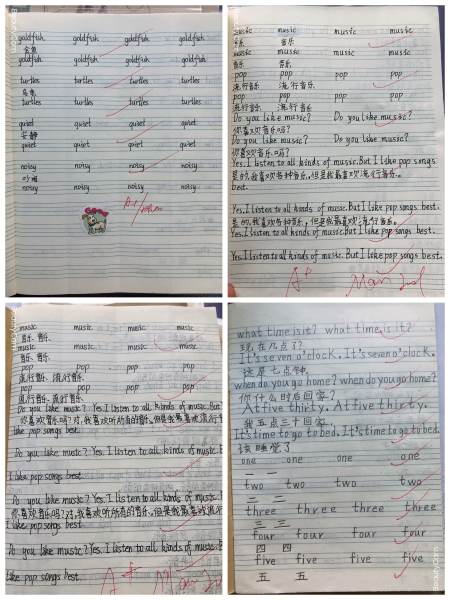 goldfish goldfish goldfish goldfish
金鱼
goldfish goldfish goldfish goldfish
turtles turtles turtles turtles
乌龟
turtles turtles turtles turtles
quiet quiet quiet quiet
安静
quiet quiet quiet quiet
noisy noisy noisy noisy
noisy noisy noisy noisy
A+
music music music music
音乐 音乐
music music music music
音乐 音乐
pop pop pop pop
流行音乐 流行音乐
pop pop pop pop
流行音乐 流行音乐
Do you like music? Do you like music?
你喜欢音乐吗?
Do you like music? Do you like music?
你喜欢音乐吗?
Yes. I listen to all kinds of music. But I like pop songs
是的,我喜欢各种音乐,但是我最喜欢流行音乐.
best.
Yes. I listen to all kinds of music. But I like pop songs best.
是的,我喜欢各种音乐,但是我最喜欢流行音乐.
Yes. I listen to all kinds of music. But I like pop songs best.
Yes. I listen to all kinds of music. But I like pop songs best.
A+
music music music music
音乐 音乐
music music music music
音乐 音乐
pop pop pop pop
流行音乐 流行音乐
pop pop pop pop
流行音乐 流行音乐
Do you like music? Yes. I listen to all kinds of music. But
你喜欢音乐吗?对,我喜欢听所有的音乐,但是我最喜欢流行
like pop songs best.
Do you like music? Yes. I listen to all kinds of music.
I like pop songs best.
Do you like music? Yes. I listen to all kinds of music.
你喜欢音乐吗?对,我喜欢听所有的音乐,但是我最喜欢流行
I like pop songs best.
Do you like music? Yes. I listen to all kinds of music.
like pop songs best.
A+
what time is it? what time is it?
现在几点了?
It's seven o'clock. It's seven o'clock.
这是七点钟.
when do you go home? when do you go home?
你什么时后回家?
At five thirty. At five thirty.
我五点三十回家.
It's time to go to bed. It's time to go to bed.
该睡觉了
one one one one
一 一
two two two two
二 二
three three three three
三 三
four four four four
四 四
five five five five
五 五